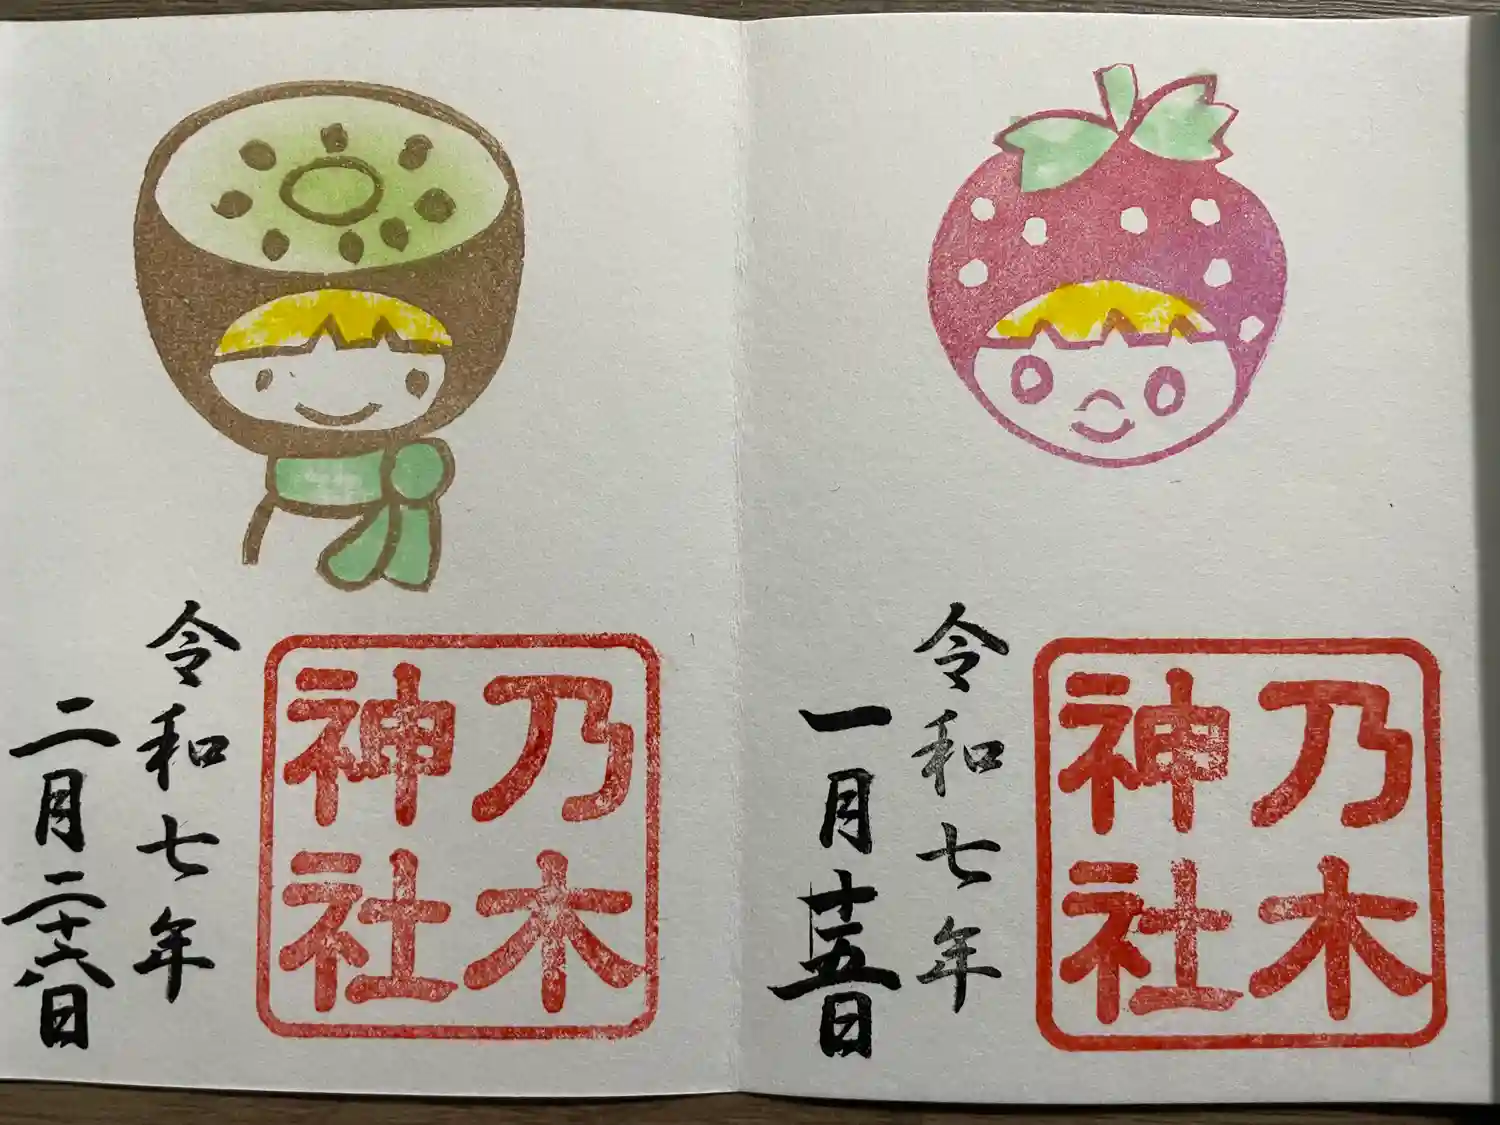 乃木
神社
令和七年
一月十五日
乃木
神社
令和七年
二月二十六日